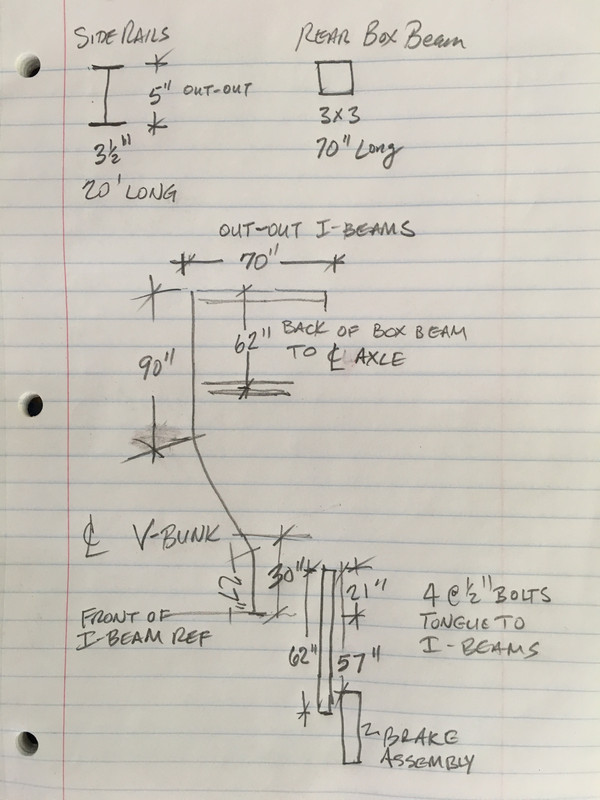 SIDE RAILS
5" OUT-OUT
3½"
20' LONG
REAR BOX BEAM
3X3
70" Long
OUT-OUT I-BEAMS
70"
90"
62" BACK OF BOX BEAM
TO ℄ AXLE
℄ V-BUNK
30"
27"
FRONT OF
I-BEAM REF
21"
62"
57"
4 @ ½" BOLTS
TONGUE TO
I-BEAMS
BRAKE
ASSEMBLY